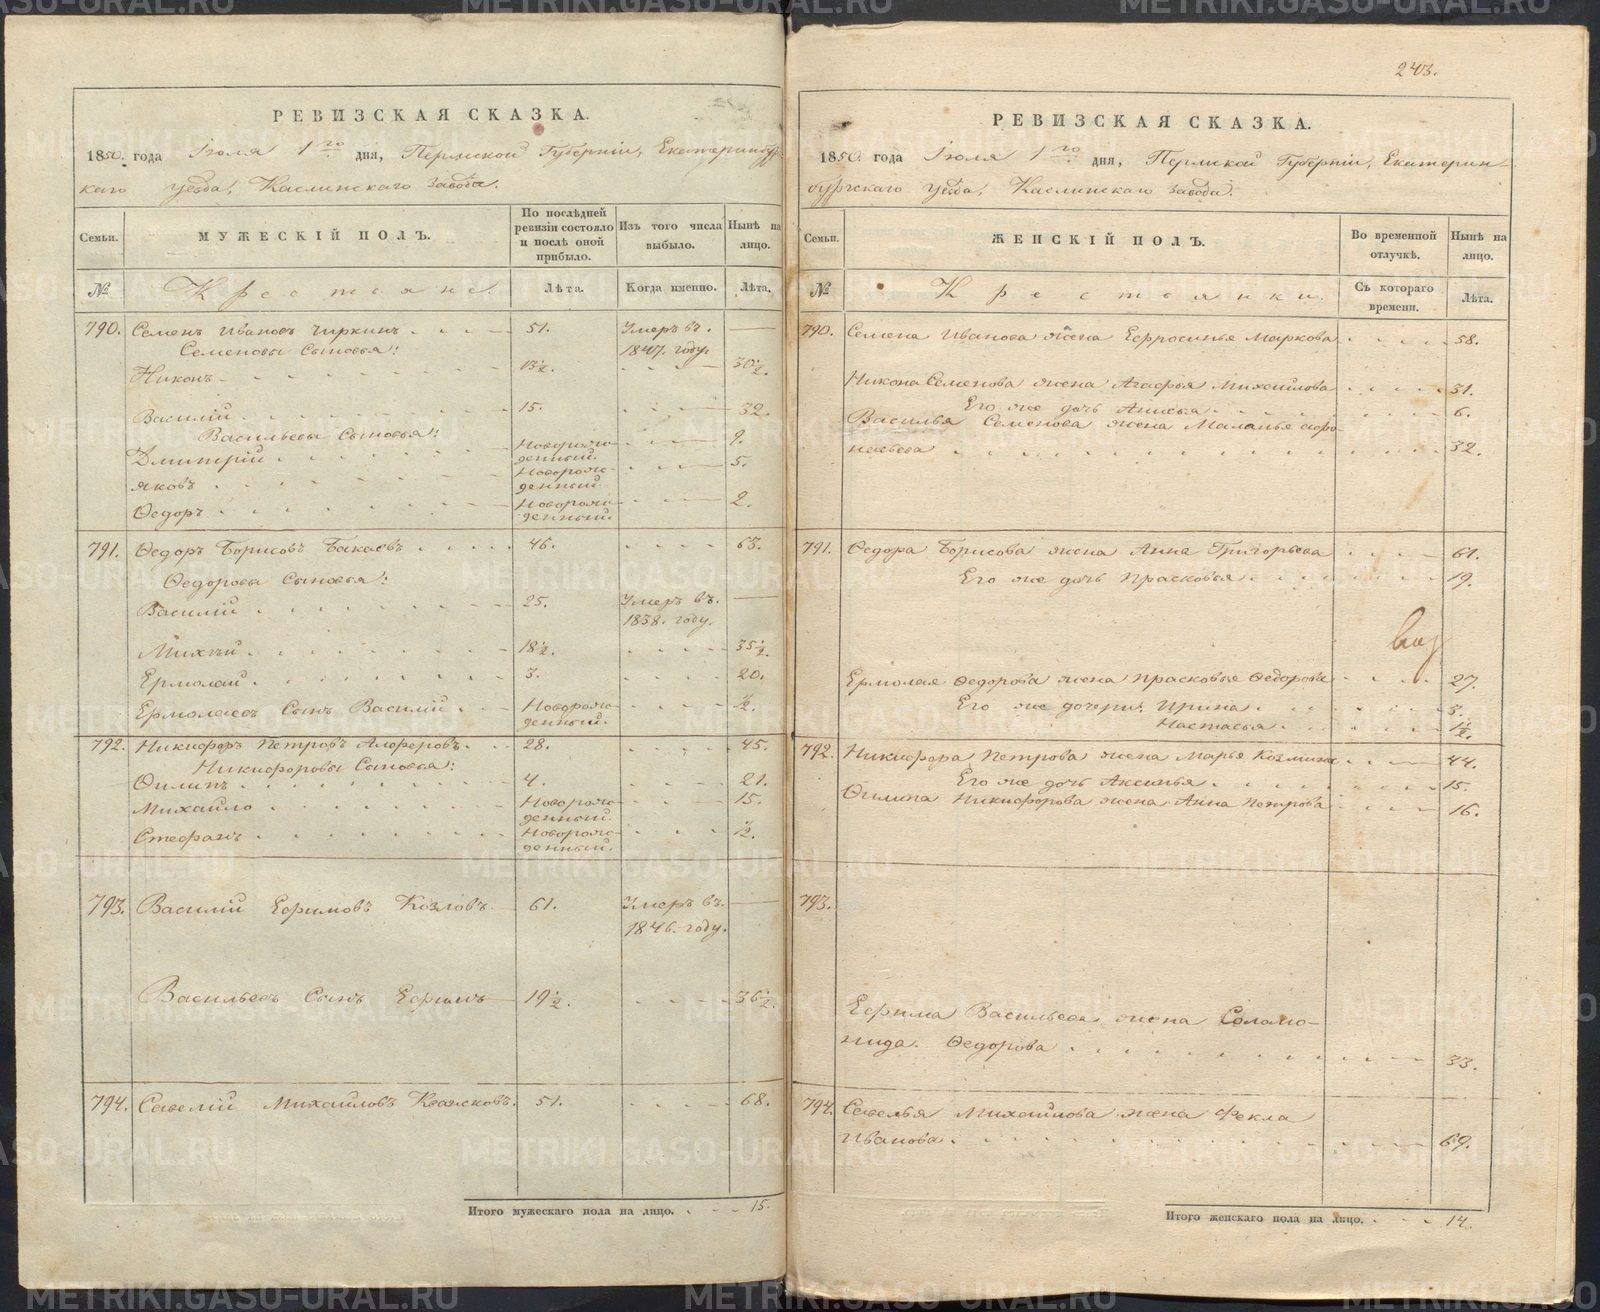 РЕВИЗСКАЯ СКАЗКА.
1850. года Іюля 1го дня, Пермской Губерніи, Екатеринбур-
скаго уезда, Каслинскаго завода.
Семьи. МУЖЕСКІЙ ПОЛЪ. По послѣдней ревизіи состояло и послѣ оной прибыло. Изъ того числа выбыло. Нынѣ на лицо.
№ Крестьяне. Лѣта. Когда именно. Лѣта.
790. Семенъ Ивановъ Чиркинъ 51. Умеръ въ
Семеновы Сыновья: 1847. году.
Никонъ 13½. 30½.
Василій 15. 32.
Васильевы Сыновья:
Дмитрій Новорож- 9.
денный.
Яковъ Новорож- 5.
денный.
Ѳедоръ Новорож- 2.
денный.
791. Ѳедоръ Борисовъ Бакаевъ 46. 63.
Ѳедоровы Сыновья:
Василій 25. Умеръ въ.
1838. году.
Михѣй 18½. 35½.
Ермолай 3. 20.
Ермолаевъ Сынъ Василій Новорож- ½.
денный.
792. Никифоръ Петровъ Алферовъ. 28. 45.
Никифоровы Сыновья:
Филипъ 4. 21.
Михайло Новорож- 15.
денный.
Стефанъ Новорож- ½.
денный.
793. Василій Ефимовъ Козловъ 61. Умеръ въ.
1846. году.
Васильевъ Сынъ Ефимъ 19½. 36½.
794. Савелій Михайловъ Квасковъ. 51. 68.
Итого мужескаго пола на лицо. 15.
243.
РЕВИЗСКАЯ СКАЗКА.
1850. года Іюля 1го дня, Пермской Губерніи, Екатерин-
бургскаго уезда, Каслинскаго завода.
Семьи. ЖЕНСКІЙ ПОЛЪ. Во временной отлучкѣ. Нынѣ на лицо.
№ Крестьянки. Съ котораго времени. Лѣта.
790. Семена Иванова жена Ефросинья Маркова 58.
Никона Семенова жена Агафья Михайлова 31.
Его же дочь Анисья 6.
Василья Семенова жена Маланья Афо-
насьева 32.
791. Ѳедора Борисова жена Анна Григорьева 61.
Его же дочь Прасковья 19.
Ермолая Ѳедорова жена Прасковья Ѳедорова 27.
Его же дочери: Ирина 3.
Настасья 1½.
792. Никифора Петрова жена Марья Козмина 44.
Его же дочь Аксинья 15.
Филипа Никифорова жена Анна Петрова 16.
793.
Ефима Васильева жена Соломо-
нида Ѳедорова 33.
794. Савелья Михайлова жена Фекла
Иванова 69.
Итого женскаго пола на лицо. 14.
METRIKI.GASO-URAL.RU